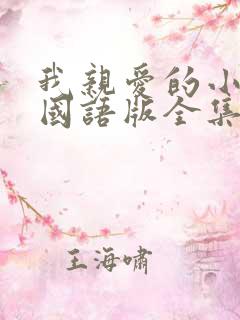 我親愛的小
國語版全集
王海嘯